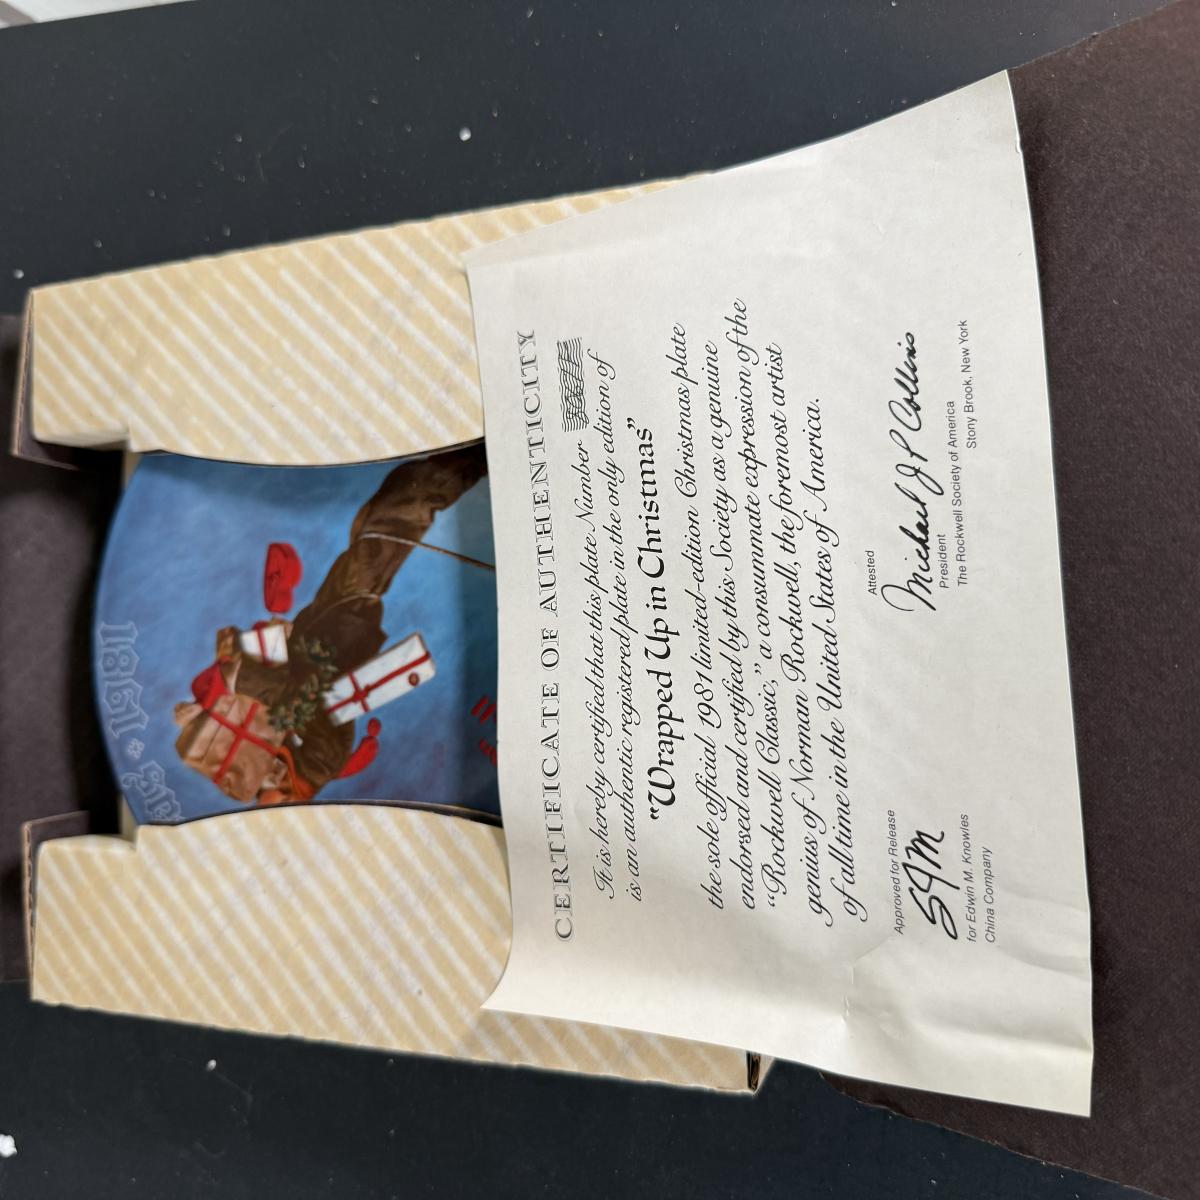 1981
CERTIFICATE OF AUTHENTICITY
It is hereby certified that this plate Number
is an authentic registered plate in the only edition of
"Wrapped Up in Christmas"
the sole official 1981 limited-edition Christmas plate
endorsed and certified by this Society as a genuine
"Rockwell Classic," a consummate expression of the
genius of Norman Rockwell, the foremost artist
of all time in the United States of America.
Approved for Release
SJM
for Edwin M. Knowles
China Company
Attested
Michael J P Collins
President
The Rockwell Society of America
Stony Brook, New York